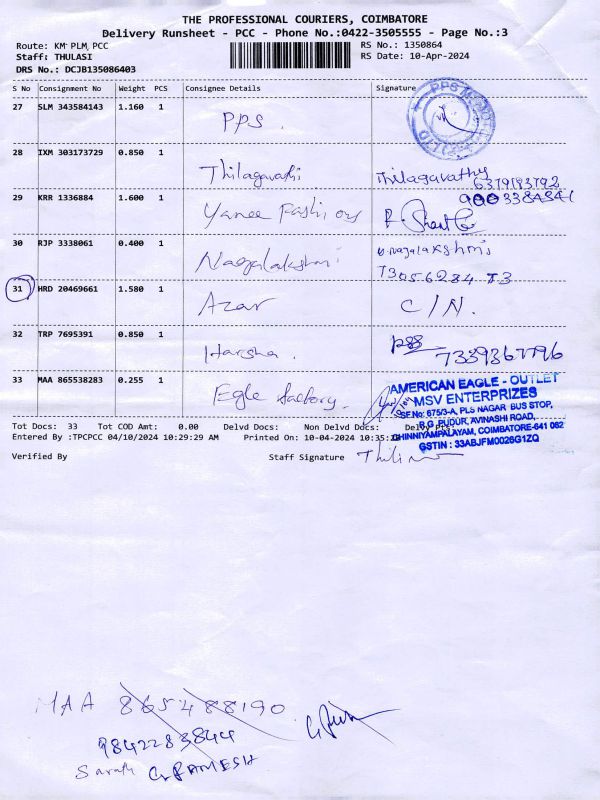 THE PROFESSIONAL COURIERS, COIMBATORE
Delivery Runsheet - PCC - Phone No.:0422-3505555 - Page No.:3
Route: KM PLM, PCC
RS No.: 1350864
Staff: THULASI
RS Date: 10-Apr-2024
DRS No.: DCJB135086403
S No Consignment No Weight PCS Consignee Details Signature
27 SLM 343584143 1.160 1 PPS.
28 IXM 303173729 0.850 1 Thilagavathi Thilagavathy
6379183792
29 KRR 1336884 1.600 1 Yanee Fashions
30 RJP 3338061 0.400 1 Nagalakshmi
31 HRD 20469661 1.580 1 Azar C/N.
32 TRP 7695391 0.850 1 Harsha.
33 MAA 865538283 0.255 1 Egle factory.
AMERICAN EAGLE - OUTLET
MSV ENTERPRIZES
SF.No: 675/3-A, PLS NAGAR BUS STOP,
R.G. PUDUR, AVINASHI ROAD,
CHINNIYAMPALAYAM, COIMBATORE-641 062
GSTIN : 33ABJFM0026G1ZQ
Tot Docs: 33 Tot COD Amt: 0.00 Delvd Docs: Non Delvd Docs:
Entered By :TPCPCC 04/10/2024 10:29:29 AM Printed On: 10-04-2024 10:35:
Verified By Staff Signature
MAA 865488190
9842283844
Sarath G. RAMESH